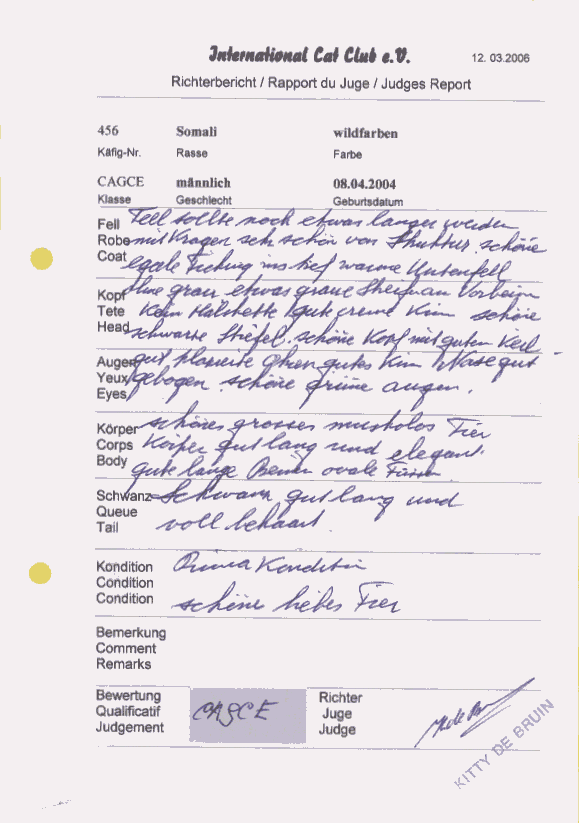 International Cat Club e.V.
12. 03.2006
Richterbericht / Rapport du Juge / Judges Report
456 Somali wildfarben
Käfig-Nr. Rasse Farbe
CAGCE männlich 08.04.2004
Klasse Geschlecht Geburtsdatum
Fell Fell sollte noch etwas langer werden
Robe mit Kragen sehr schön von schöne
Coat egale Ticking ins tief warme Unterfell
Kopf Ohne grau etwas graue
Tete Kein Halskette gute creme Kinn schöne
Head schwarze Stiefel schöne Kopf mit guten Keil
Augen gut plasierte Ohren gutes Kinn Nase gut
Yeux gebogen schöne grüne augen.
Eyes
Körper schönes grosses muskolos Tier
Corps Körper gut lang und elegant.
Body gute lange Beine ovale
Schwanz Schwanz gut lang und
Queue
Tail voll behaart.
Kondition Prima Kondition
Condition
Condition schöne liebes Tier
Bemerkung
Comment
Remarks
Bewertung Richter
Qualificatif CAGCE Juge
Judgement Judge
KITTY DE BRUIN